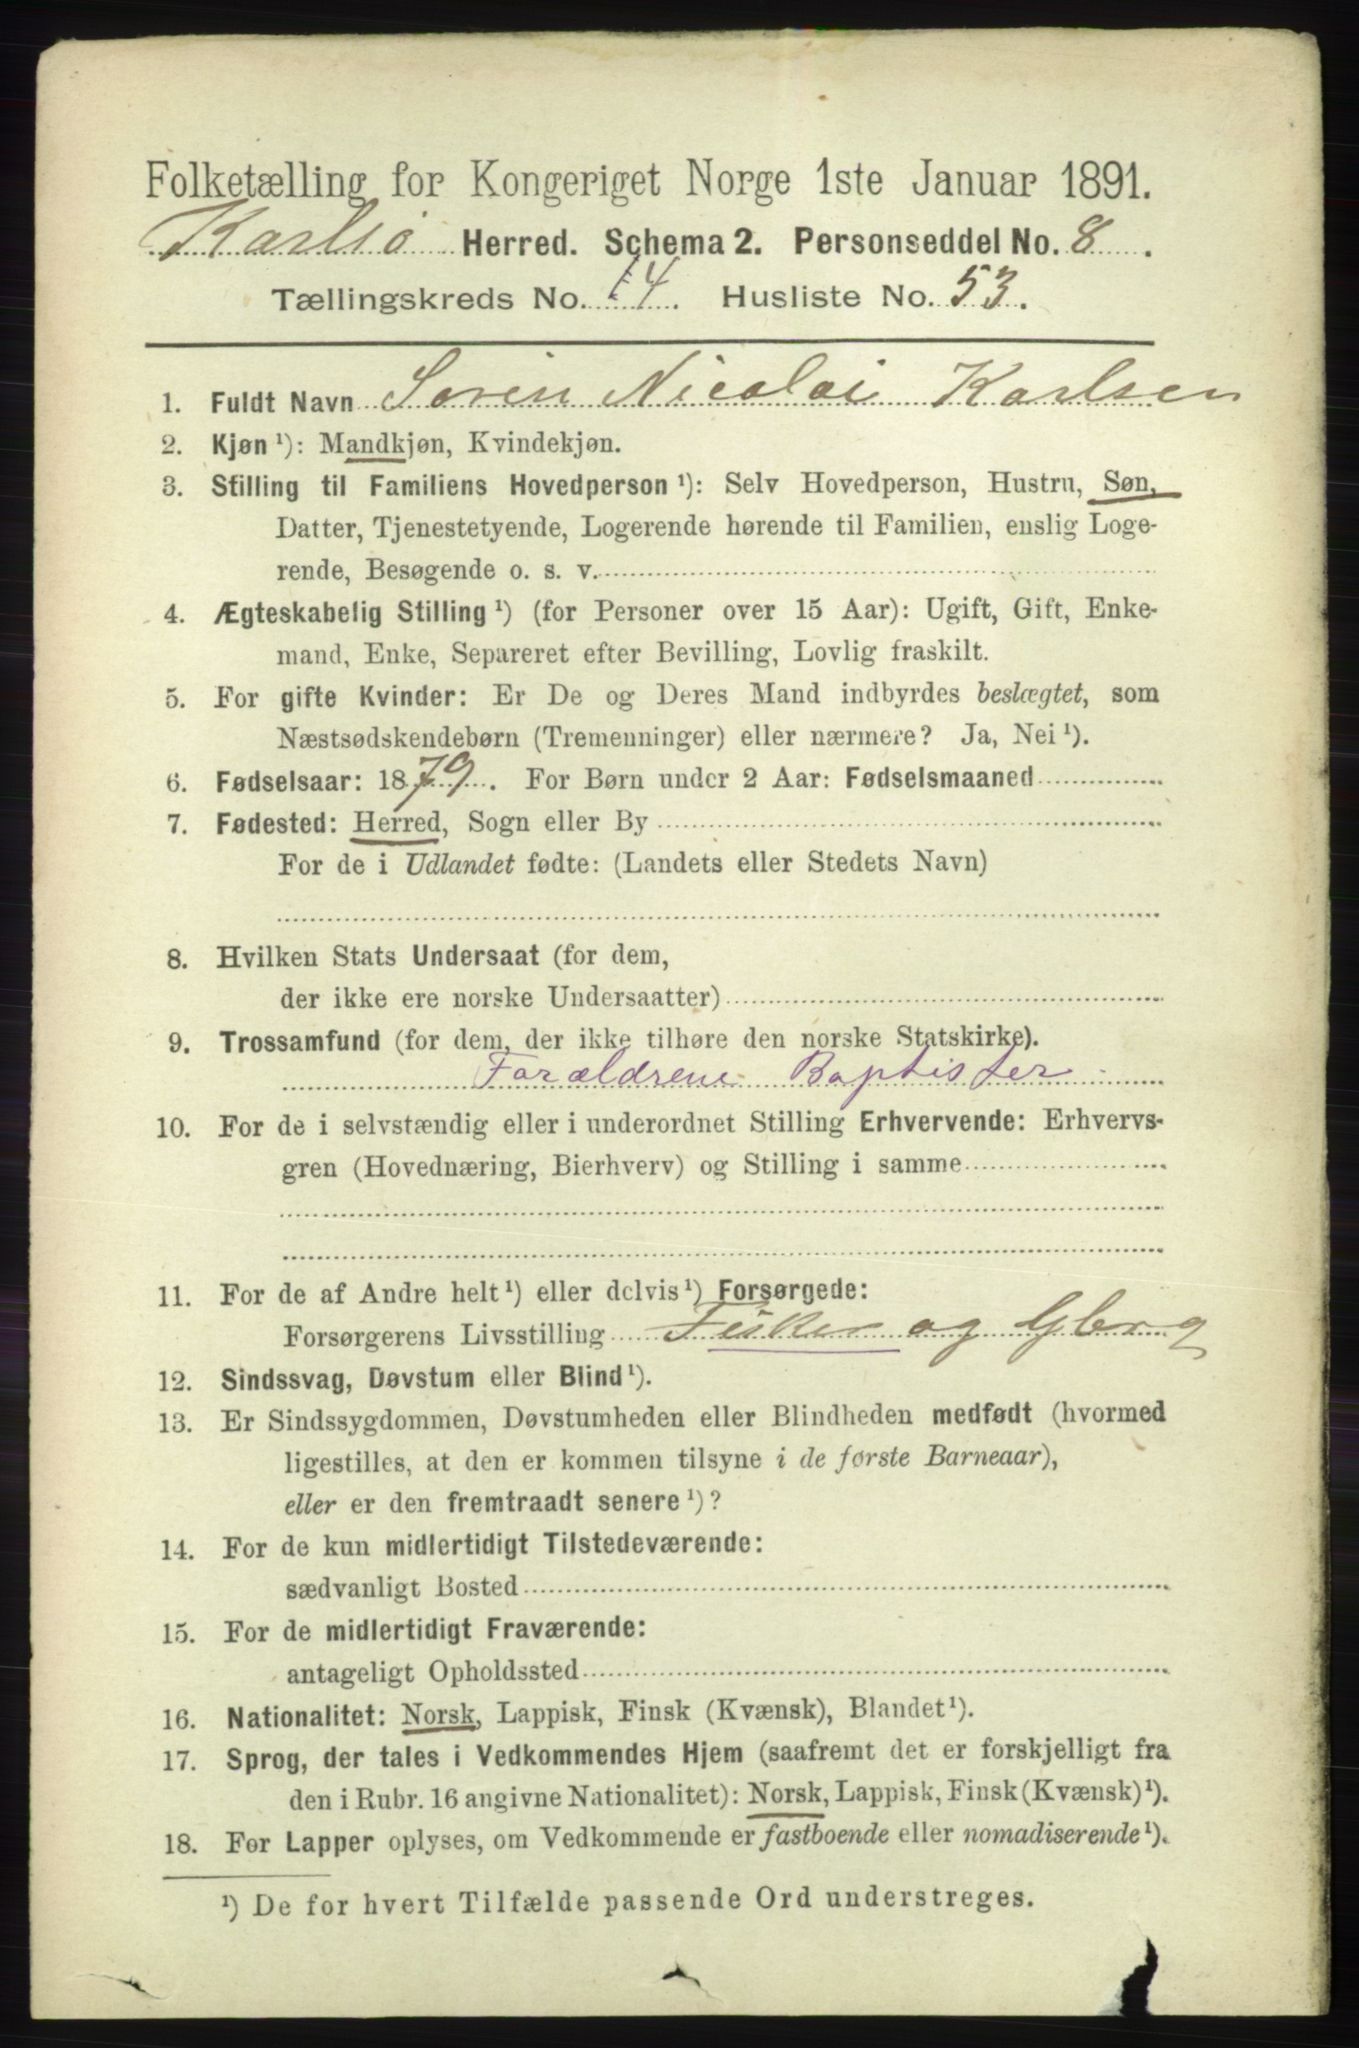 Folketælling for Kongeriget Norge 1ste Januar 1891.
Karlsø Herred. Schema 2. Personseddel No. 8.
Tællingskreds No. 14. Husliste No. 53.
1. Fuldt Navn Søren Nicolai Karlsen
2. Kjøn ¹): Mandkjøn, Kvindekjøn.
3. Stilling til Familiens Hovedperson ¹): Selv Hovedperson, Hustru, Søn,
Datter, Tjenestetyende, Logerende hørende til Familien, enslig Loge-
rende, Besøgende o. s. v.
4. Ægteskabelig Stilling ¹) (for Personer over 15 Aar): Ugift, Gift, Enke-
mand, Enke, Separeret efter Bevilling, Lovlig fraskilt.
5. For gifte Kvinder: Er De og Deres Mand indbyrdes beslægtet, som
Næstsødskendebørn (Tremenninger) eller nærmere? Ja, Nei ¹).
6. Fødselsaar: 1879. For Børn under 2 Aar: Fødselsmaaned
7. Fødested: Herred, Sogn eller By
For de i Udlandet fødte: (Landets eller Stedets Navn)
8. Hvilken Stats Undersaat (for dem,
der ikke ere norske Undersaatter)
9. Trossamfund (for dem, der ikke tilhøre den norske Statskirke).
Forældrene Baptister
10. For de i selvstændig eller i underordnet Stilling Erhvervende: Erhvervs-
gren (Hovednæring, Bierhverv) og Stilling i samme
11. For de af Andre helt ¹) eller delvis ¹) Forsørgede:
Forsørgerens Livsstilling Fisker og Gbrg
12. Sindssvag, Døvstum eller Blind ¹).
13. Er Sindssygdommen, Døvstumheden eller Blindheden medfødt (hvormed
ligestilles, at den er kommen tilsyne i de første Barneaar),
eller er den fremtraadt senere ¹)?
14. For de kun midlertidigt Tilstedeværende:
sædvanligt Bosted
15. For de midlertidigt Fraværende:
antageligt Opholdssted
16. Nationalitet: Norsk, Lappisk, Finsk (Kvænsk), Blandet ¹).
17. Sprog, der tales i Vedkommendes Hjem (saafremt det er forskjelligt fra
den i Rubr. 16 angivne Nationalitet): Norsk, Lappisk, Finsk (Kvænsk) ¹).
18. For Lapper oplyses, om Vedkommende er fastboende eller nomadiserende ¹).
¹) De for hvert Tilfælde passende Ord understreges.